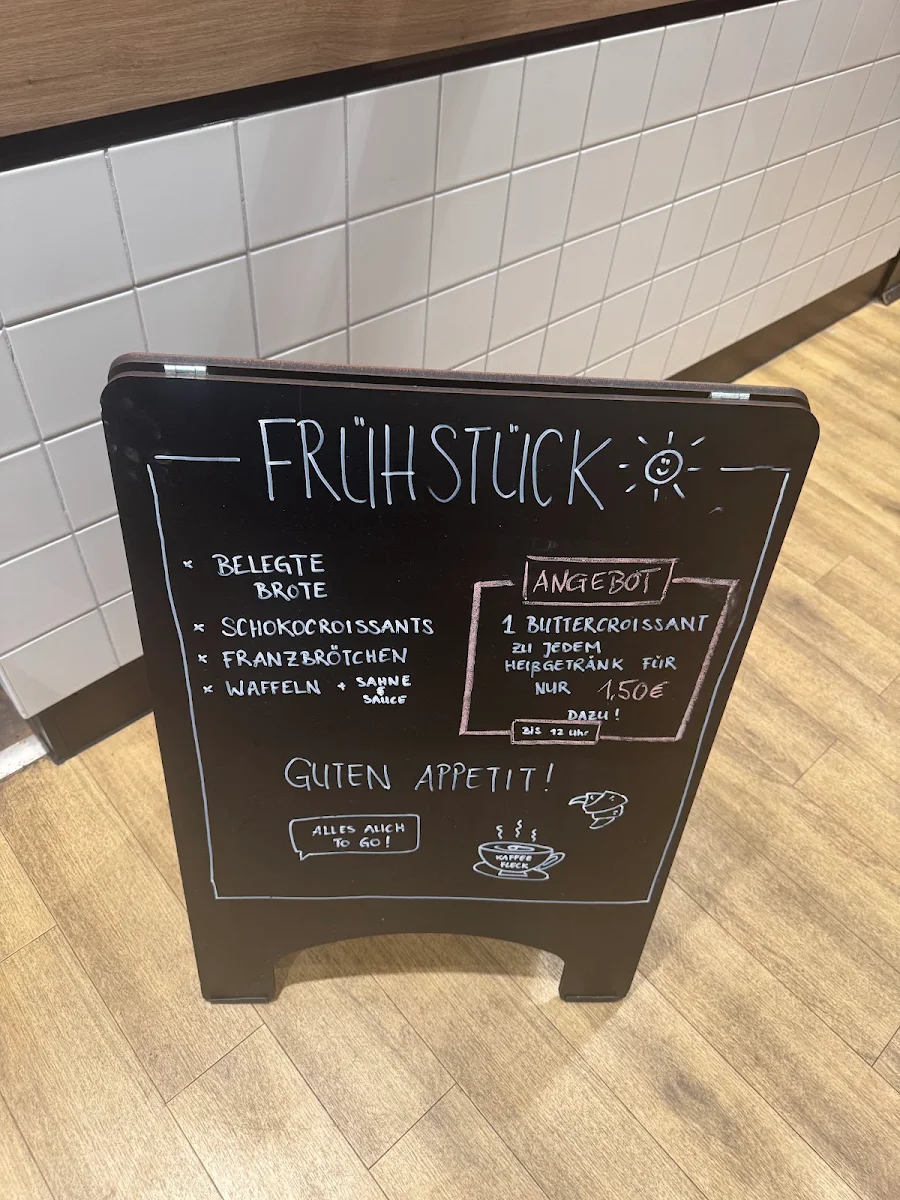 FRÜHSTÜCK
* BELEGTE
BROTE
* SCHOKOCROISSANTS
* FRANZBRÖTCHEN
* WAFFELN + SAHNE
&
SAUCE
ANGEBOT
1 BUTTERCROISSANT
ZU JEDEM
HEIßGETRÄNK FÜR
NUR 1,50€
DAZU!
BIS 12 Uhr
GUTEN APPETIT!
ALLES AUCH
TO GO!
KAFFEE
FLECK